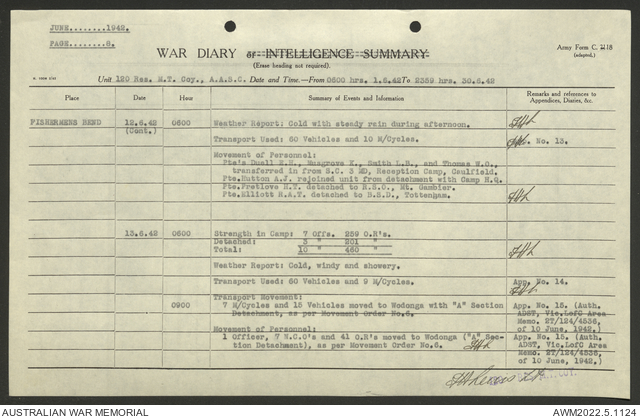 JUNE........1942.
PAGE........8.
WAR DIARY or INTELLIGENCE SUMMARY
(Erase heading not required).
Army Form C. 2118
(adapted.)
Unit 120 Res. M.T. Coy., A.A.S.C. Date and Time.—From 0600 hrs. 1.6.42 To 2359 hrs. 30.6.42
Place Date Hour Summary of Events and Information Remarks and references to Appendices, Diaries, &c.
FISHERMENS BEND 12.6.42 0600 Weather Report: Cold with steady rain during afternoon.
(Cont.)
Transport Used: 60 Vehicles and 10 M/Cycles. App. No. 13.
Movement of Personnel:
Pte's Duell E.H., Musgrove K., Smith L.B., and Thomas W.O.,
transferred in from S.C. 3 MD, Reception Camp, Caulfield.
Pte. Hutton A.J. rejoined unit from detachment with Camp H.Q.
Pte. Pretlove H.T. detached to R.S.O., Mt. Gambier.
Pte. Elliott R.A.T. detached to B.S.D., Tottenham.
13.6.42 0600 Strength in Camp: 7 Offs. 259 O.R's.
Detached: 3 " 201 "
Total: 10 " 460 "
Weather Report: Cold, windy and showery.
Transport Used: 60 Vehicles and 9 M/Cycles. App. No. 14.
Transport Movement:
0900 7 M/Cycles and 15 Vehicles moved to Wodonga with "A" Section App. No. 15. (Auth.
Detachment, as per Movement Order No.6. ADST, Vic.LofC Area
Memo. 27/124/4536,
Movement of Personnel: of 10 June, 1942.)
1 Officer, 7 N.C.O's and 41 O.R's moved to Wodonga ("A" Sec- App. No. 15. (Auth.
tion Detachment), as per Movement Order No.6. ADST, Vic.LofC Area
Memo. 27/124/4536,
of 10 June, 1942.)
AUSTRALIAN WAR MEMORIAL
AWM2022.5.1124